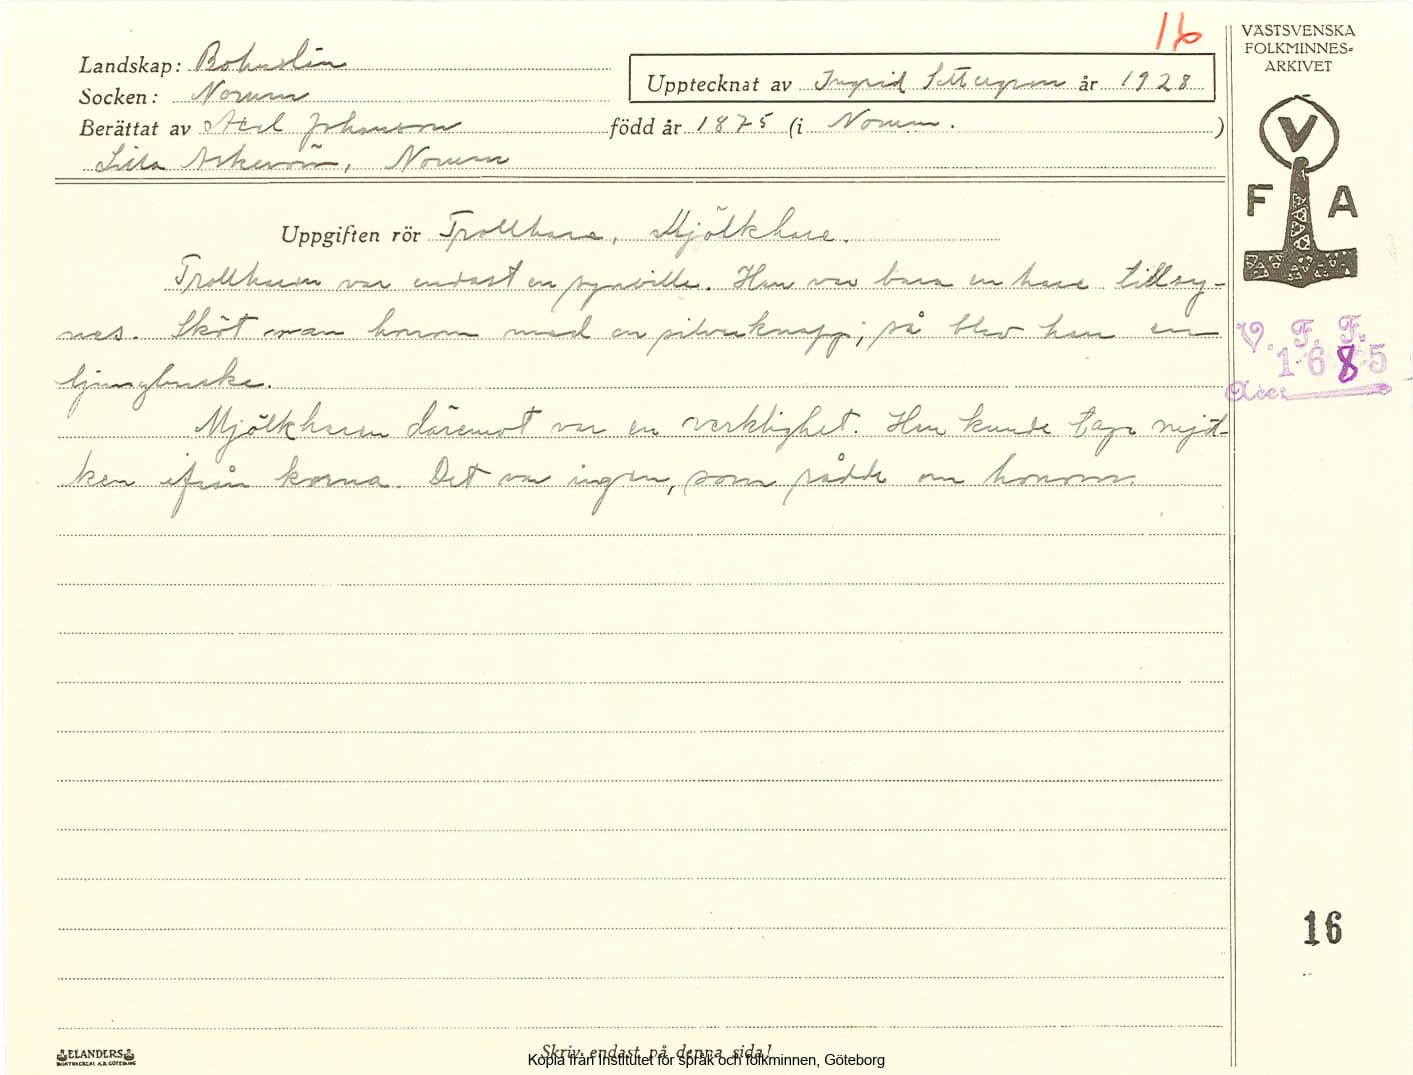 16
VÄSTSVENSKA
FOLKMINNES-
ARKIVET
Landskap: Bohuslän
Upptecknat av Ingrid Settergren år 1928
Socken: Norum
Berättat av Axel Johansson född år 1875 (i Norum.)
Lilla Askerön, Norum
V
F A
Uppgiften rör Trollhare, Mjölkhare.
Trollharen var endast en synvilla. Han var bara en hare tillsy-
nes. Sköt man honom med en silverknapp; så blev han en
ljungbuske.
V. F. F.
1685
Acc:
Mjölkharen däremot var en verklighet. Han kunde taga mjöl-
ken ifrån korna. Det var ingen, som rådde om honom.
16
ELANDERS
Skriv endast på denna sida!
Kopia från Institutet för språk och folkminnen, Göteborg